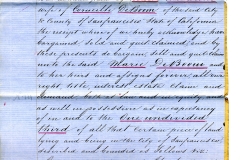 wife of Cornelio DeBoom of the said City
& County of San Francisco State of California
the receipt whereof we hereby acknowledge have
bargained sold and quit claimed, and by
these presents do bargain sell and quit claim
unto the said Marie DeBoom and
to her heirs and assigns forever, all our
right title interest estate claim and
as well in possession as in expectancy
of in and to the One undivided
third of all that certain piece of land
lying and being in the City of San Francisco
described and bounded as follows viz.